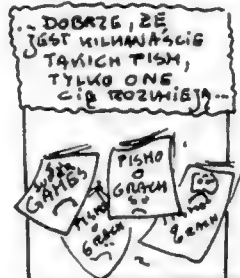 ...DOBRZE, ŻE
JEST KILKANAŚCIE
TAKICH PISM,
TYLKO ONE
CIĘ ROZUMIEJĄ...
GAMES
PISMO
O
GRACH
PISMO
O
GRACH
O
GRACH